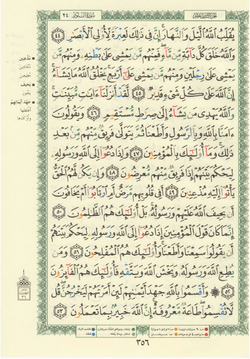 يُقَلِّبُ ٱللَّهُ ٱلَّيْلَ وَٱلنَّهَارَ إِنَّ فِى ذَٰلِكَ لَعِبْرَةً لِّأُو۟لِى ٱلْأَبْصَٰرِ ٤٤
وَٱللَّهُ خَلَقَ كُلَّ دَآبَّةٍ مِّن مَّآءٍ فَمِنْهُم مَّن يَمْشِى عَلَىٰ بَطْنِهِۦ وَمِنْهُم
مَّن يَمْشِى عَلَىٰ رِجْلَيْنِ وَمِنْهُم مَّن يَمْشِى عَلَىٰٓ أَرْبَعٍ يَخْلُقُ ٱللَّهُ مَا يَشَآءُ
إِنَّ ٱللَّهَ عَلَىٰ كُلِّ شَىْءٍ قَدِيرٌ ٤٥ لَّقَدْ أَنزَلْنَآ ءَايَٰتٍ مُّبَيِّنَٰتٍ
وَٱللَّهُ يَهْدِى مَن يَشَآءُ إِلَىٰ صِرَٰطٍ مُّسْتَقِيمٍ ٤٦ وَيَقُولُونَ
ءَامَنَّا بِٱللَّهِ وَبِٱلرَّسُولِ وَأَطَعْنَا ثُمَّ يَتَوَلَّىٰ فَرِيقٌ مِّنْهُم مِّنۢ بَعْدِ
ذَٰلِكَ وَمَآ أُو۟لَٰٓئِكَ بِٱلْمُؤْمِنِينَ ٤٧ وَإِذَا دُعُوٓا۟ إِلَى ٱللَّهِ وَرَسُولِهِۦ
لِيَحْكُمَ بَيْنَهُمْ إِذَا فَرِيقٌ مِّنْهُم مُّعْرِضُونَ ٤٨ وَإِن يَكُن لَّهُمُ ٱلْحَقُّ
يَأْتُوٓا۟ إِلَيْهِ مُذْعِنِينَ ٤٩ أَفِى قُلُوبِهِم مَّرَضٌ أَمِ ٱرْتَابُوٓا۟ أَمْ يَخَافُونَ
أَن يَحِيفَ ٱللَّهُ عَلَيْهِمْ وَرَسُولُهُۥ بَلْ أُو۟لَٰٓئِكَ هُمُ ٱلظَّٰلِمُونَ ٥٠
إِنَّمَا كَانَ قَوْلَ ٱلْمُؤْمِنِينَ إِذَا دُعُوٓا۟ إِلَى ٱللَّهِ وَرَسُولِهِۦ لِيَحْكُمَ بَيْنَهُمْ
أَن يَقُولُوا۟ سَمِعْنَا وَأَطَعْنَا وَأُو۟لَٰٓئِكَ هُمُ ٱلْمُفْلِحُونَ ٥١ وَمَن
يُطِعِ ٱللَّهَ وَرَسُولَهُۥ وَيَخْشَ ٱللَّهَ وَيَتَّقْهِ فَأُو۟لَٰٓئِكَ هُمُ ٱلْفَآئِزُونَ
٥٢ وَأَقْسَمُوا۟ بِٱللَّهِ جَهْدَ أَيْمَٰنِهِمْ لَئِنْ أَمَرْتَهُمْ لَيَخْرُجُنَّ قُل
لَّا تُقْسِمُوا۟ طَاعَةٌ مَّعْرُوفَةٌ إِنَّ ٱللَّهَ خَبِيرٌۢ بِمَا تَعْمَلُونَ ٥٣
٣٥٦